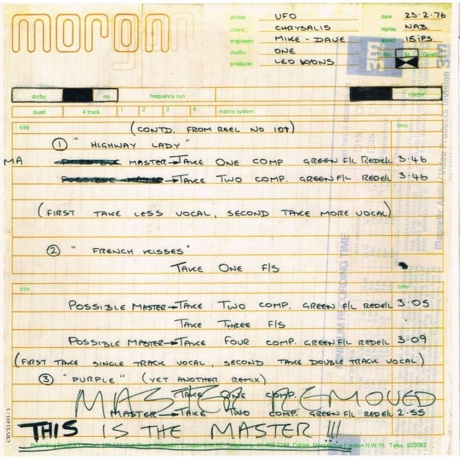 morgan
article UFO date 23-2-76
client CHRYSALIS replay NAB.
engineers MIKE - DAVE speed 15 IPS
studio ONE
producer LEO LYONS
dolby no frequency run master
duet 4 track 1 2 3 4 matrix system
title (CONTD. FROM REEL NO 107) time
① "HIGHWAY LADY"
MA MASTER→TAKE ONE COMP GREEN F/L REDE/L 3-46
TAKE TWO COMP. GREEN F/L REDE/L 3-46
(FIRST TAKE LESS VOCAL, SECOND TAKE MORE VOCAL)
② "FRENCH KISSES"
TAKE ONE F/S
POSSIBLE MASTER→TAKE TWO COMP. GREEN F/L REDE/L 3-05
TAKE THREE F/S
POSSIBLE MASTER→TAKE FOUR COMP. GREEN F/L REDE/L 3-09
(FIRST TAKE SINGLE TRACK VOCAL, SECOND TAKE DOUBLE TRACK VOCAL)
③ "PURPLE" (YET ANOTHER REMIX)
TAKE ONE COMP.
MASTER REMOVED
MASTER→TAKE TWO COMP. GREEN F/L REDE/L 2-55
THIS IS THE MASTER !!!
3M